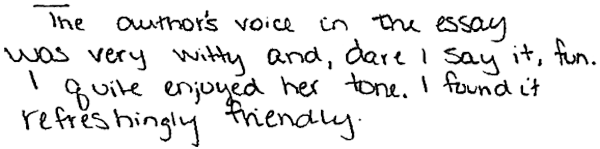 The author's voice in the essay
was very witty and, dare I say it, fun.
I quite enjoyed her tone. I found it
refreshingly friendly.